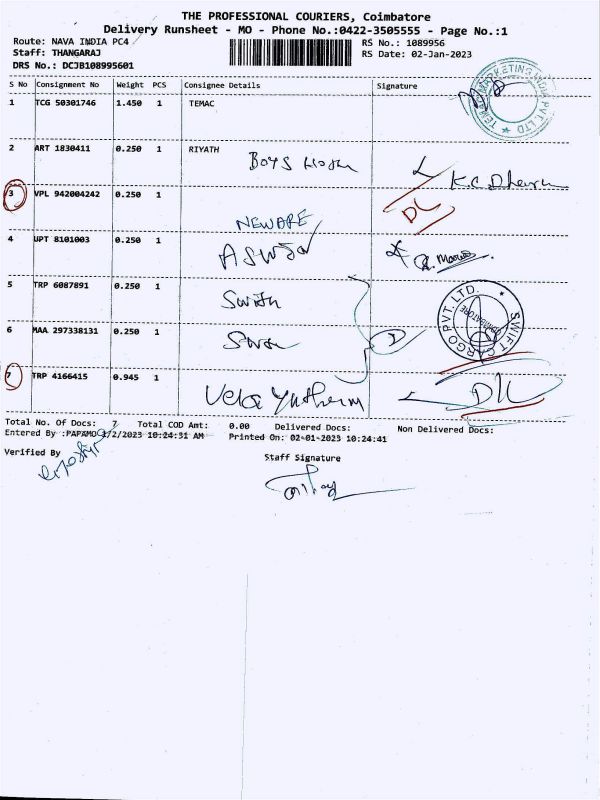 THE PROFESSIONAL COURIERS, Coimbatore
Delivery Runsheet - MO - Phone No.:0422-3505555 - Page No.:1
Route: NAVA INDIA PC4 RS No.: 1089956
Staff: THANGARAJ RS Date: 02-Jan-2023
DRS No.: DCJB108995601
S No Consignment No Weight PCS Consignee Details Signature
TEMAC MARKETING INDIA PVT. LTD ★
1 TCG 50301746 1.450 1 TEMAC
2 ART 1830411 0.250 1 RIYATH
Boys
K.C.
3 VPL 942004242 0.250 1
DL
NEWARE
4 UPT 8101003 0.250 1
5 TRP 6087891 0.250 1
SWIFT CARGO PVT. LTD. ★
COIMBATORE
6 MAA 297338131 0.250 1
7 TRP 4166415 0.945 1
DL
Total No. Of Docs: 7 Total COD Amt: 0.00 Delivered Docs: Non Delivered Docs:
Entered By :PAPAMO 1/2/2023 10:24:31 AM Printed On: 02-01-2023 10:24:41
Verified By Staff Signature